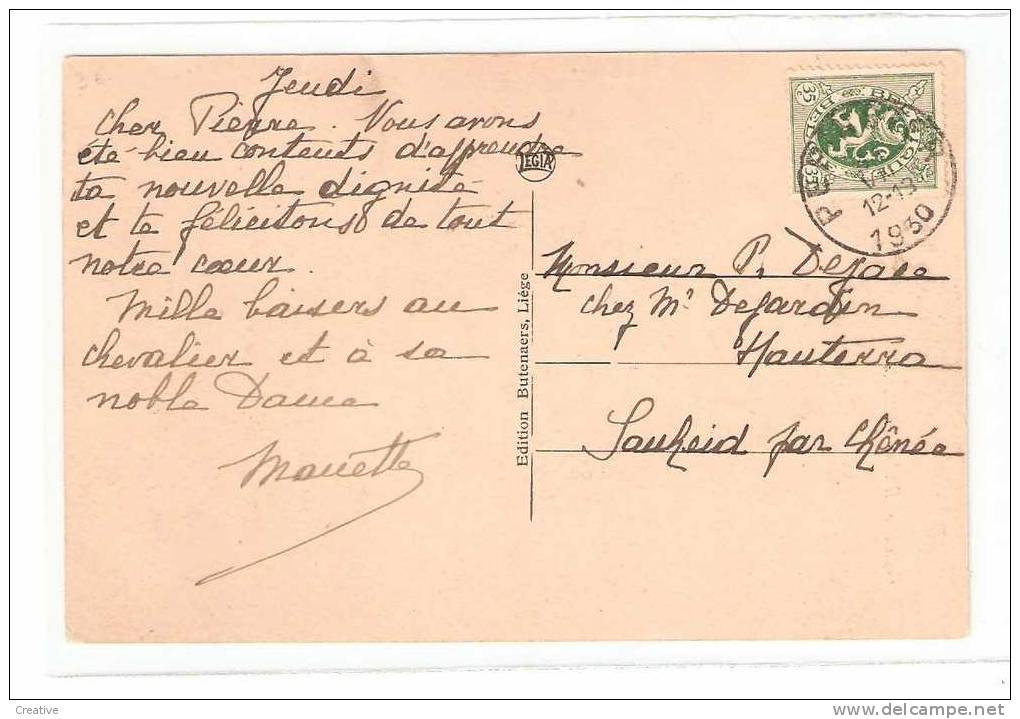 Jeudi
Cher Pierre. Vous avons
été bien contents d'apprendre
ta nouvelle dignité
et te félicitons de tout
notre cœur.
Mille baisers au
chevalier et à sa
noble Dame
LEGIA
Edition Butenaers, Liége
35 BELGIQUE
BELGIË 35
12-13
1930
Monsieur P.
chez Mr Dejardin
Hauterra
Sauheid par Chênée
Creative
www.delcampe.net